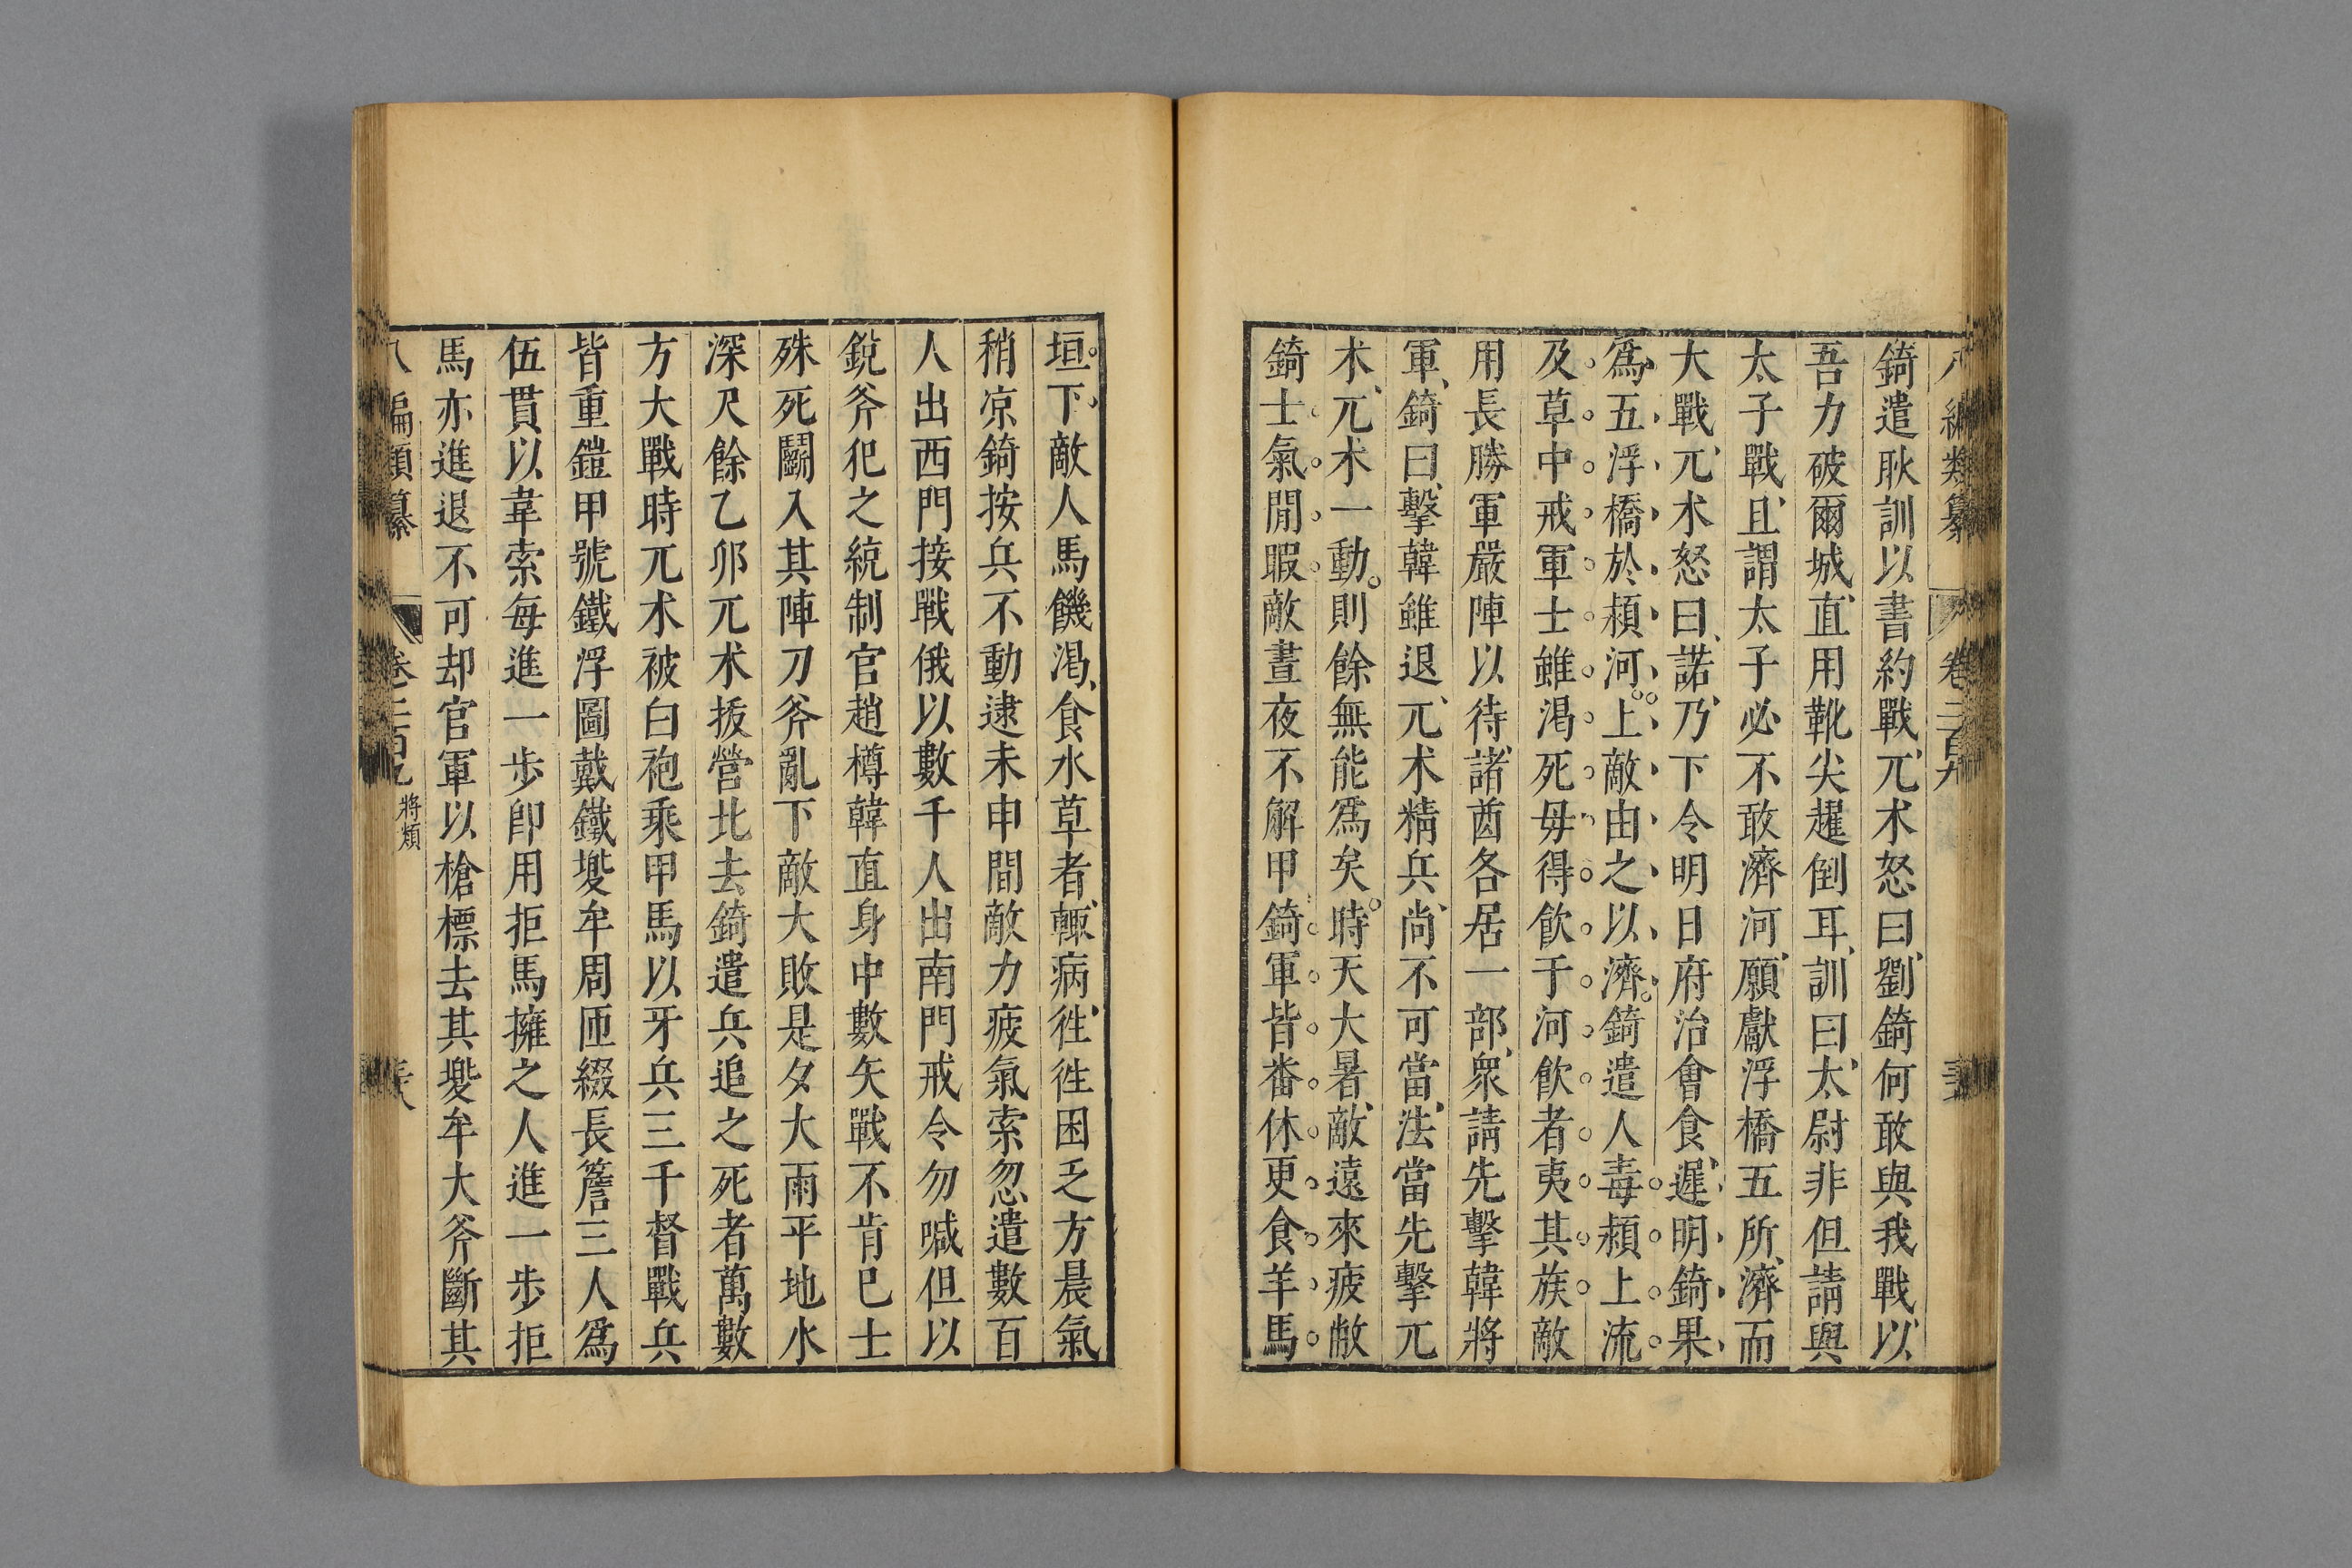 八編類纂 卷二百九
錡遣耿訓以書約戰兀术怒曰劉錡何敢與我戰以
吾力破爾城直用靴尖趯倒耳訓曰太尉非但請與
太子戰且謂太子必不敢濟河願獻浮橋五所濟而
大戰兀术怒曰諾乃下令明日府治會食遲明錡果
爲五浮橋於潁河上敵由之以濟錡遣人毒潁上流
及草中戒軍士雖渴死毋得飮于河飮者夷其族敵
用長勝軍嚴陣以待諸酋各居一部衆請先擊韓將
軍錡曰擊韓雖退兀术精兵尚不可當法當先擊兀
术兀术一動則餘無能爲矣時天大暑敵遠來疲敝
錡士氣閒暇敵晝夜不解甲錡軍皆番休更食羊馬
垣下敵人馬饑渴食水草者輒病徃徃困乏方晨氣
稍凉錡按兵不動逮未申間敵力疲氣索忽遣數百
人出西門接戰俄以數千人出南門戒令勿喊但以
銳斧犯之統制官趙樽韓直身中數矢戰不肯已士
殊死鬬入其陣刀斧亂下敵大敗是夕大雨平地水
深尺餘乙卯兀术拔營北去錡遣兵追之死者萬數
方大戰時兀术被白袍乘甲馬以牙兵三千督戰兵
皆重鎧甲號鐵浮圖戴鐵兠牟周匝綴長簷三人爲
伍貫以韋索每進一步卽用拒馬擁之人進一步拒
馬亦進退不可却官軍以槍標去其兠牟大斧斷其
八編類纂 卷二百九 將類